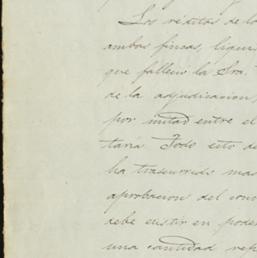 Los réditos de lo
ambas fincas, liqui
que falleció la Sra.
de la adjudicacion,
por mitad entre el
taria. Todo esto de
ha trascurrido mas
aprobacion del con
debe existir en poder
una cantidad rep